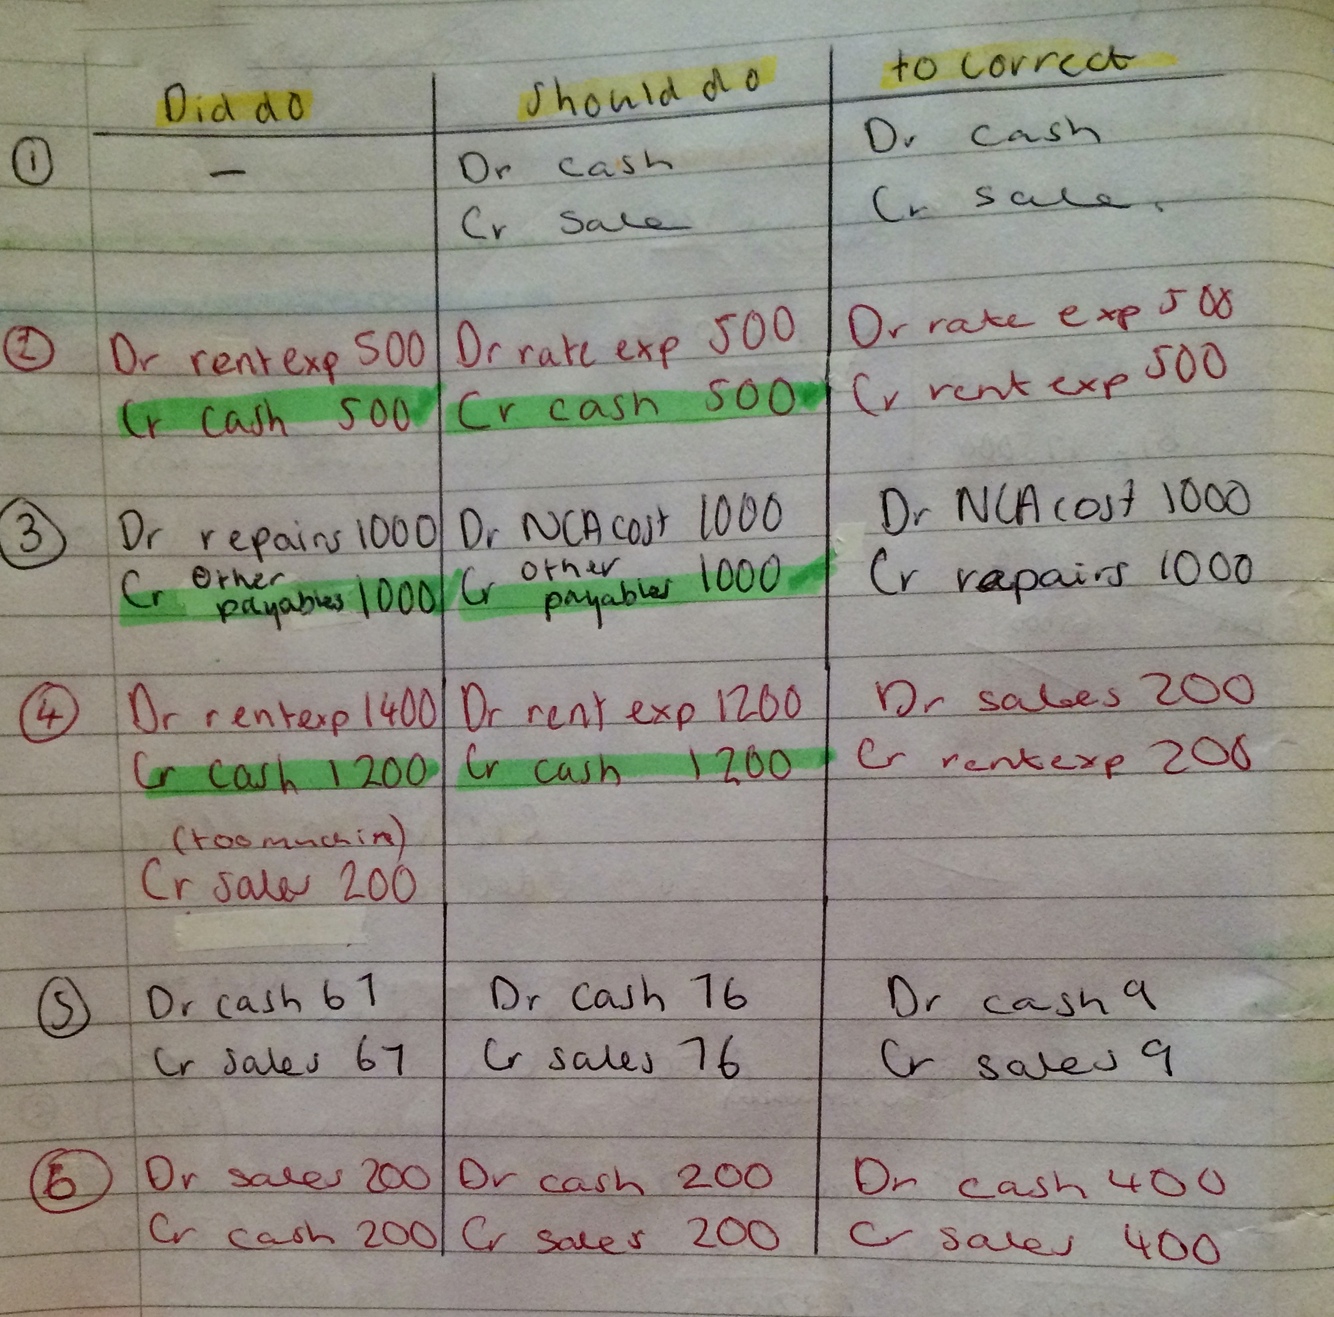 Did do Should do to correct
① — Dr cash Dr cash
Cr Sale Cr sale.
② Dr rent exp 500 Dr rate exp 500 Dr rate exp 500
Cr cash 500 Cr cash 500 Cr rent exp 500
③ Dr repairs 1000 Dr NCA cost 1000 Dr NCA cost 1000
Cr other payables 1000 Cr other payables 1000 Cr repairs 1000
④ Dr rent exp 1400 Dr rent exp 1200 Dr sales 200
Cr cash 1200 Cr cash 1200 Cr rent exp 200
(too much in)
Cr sales 200
⑤ Dr cash 67 Dr cash 76 Dr cash 9
Cr sales 67 Cr sales 76 Cr sales 9
⑥ Dr sales 200 Dr cash 200 Dr cash 400
Cr cash 200 Cr sales 200 Cr sales 400